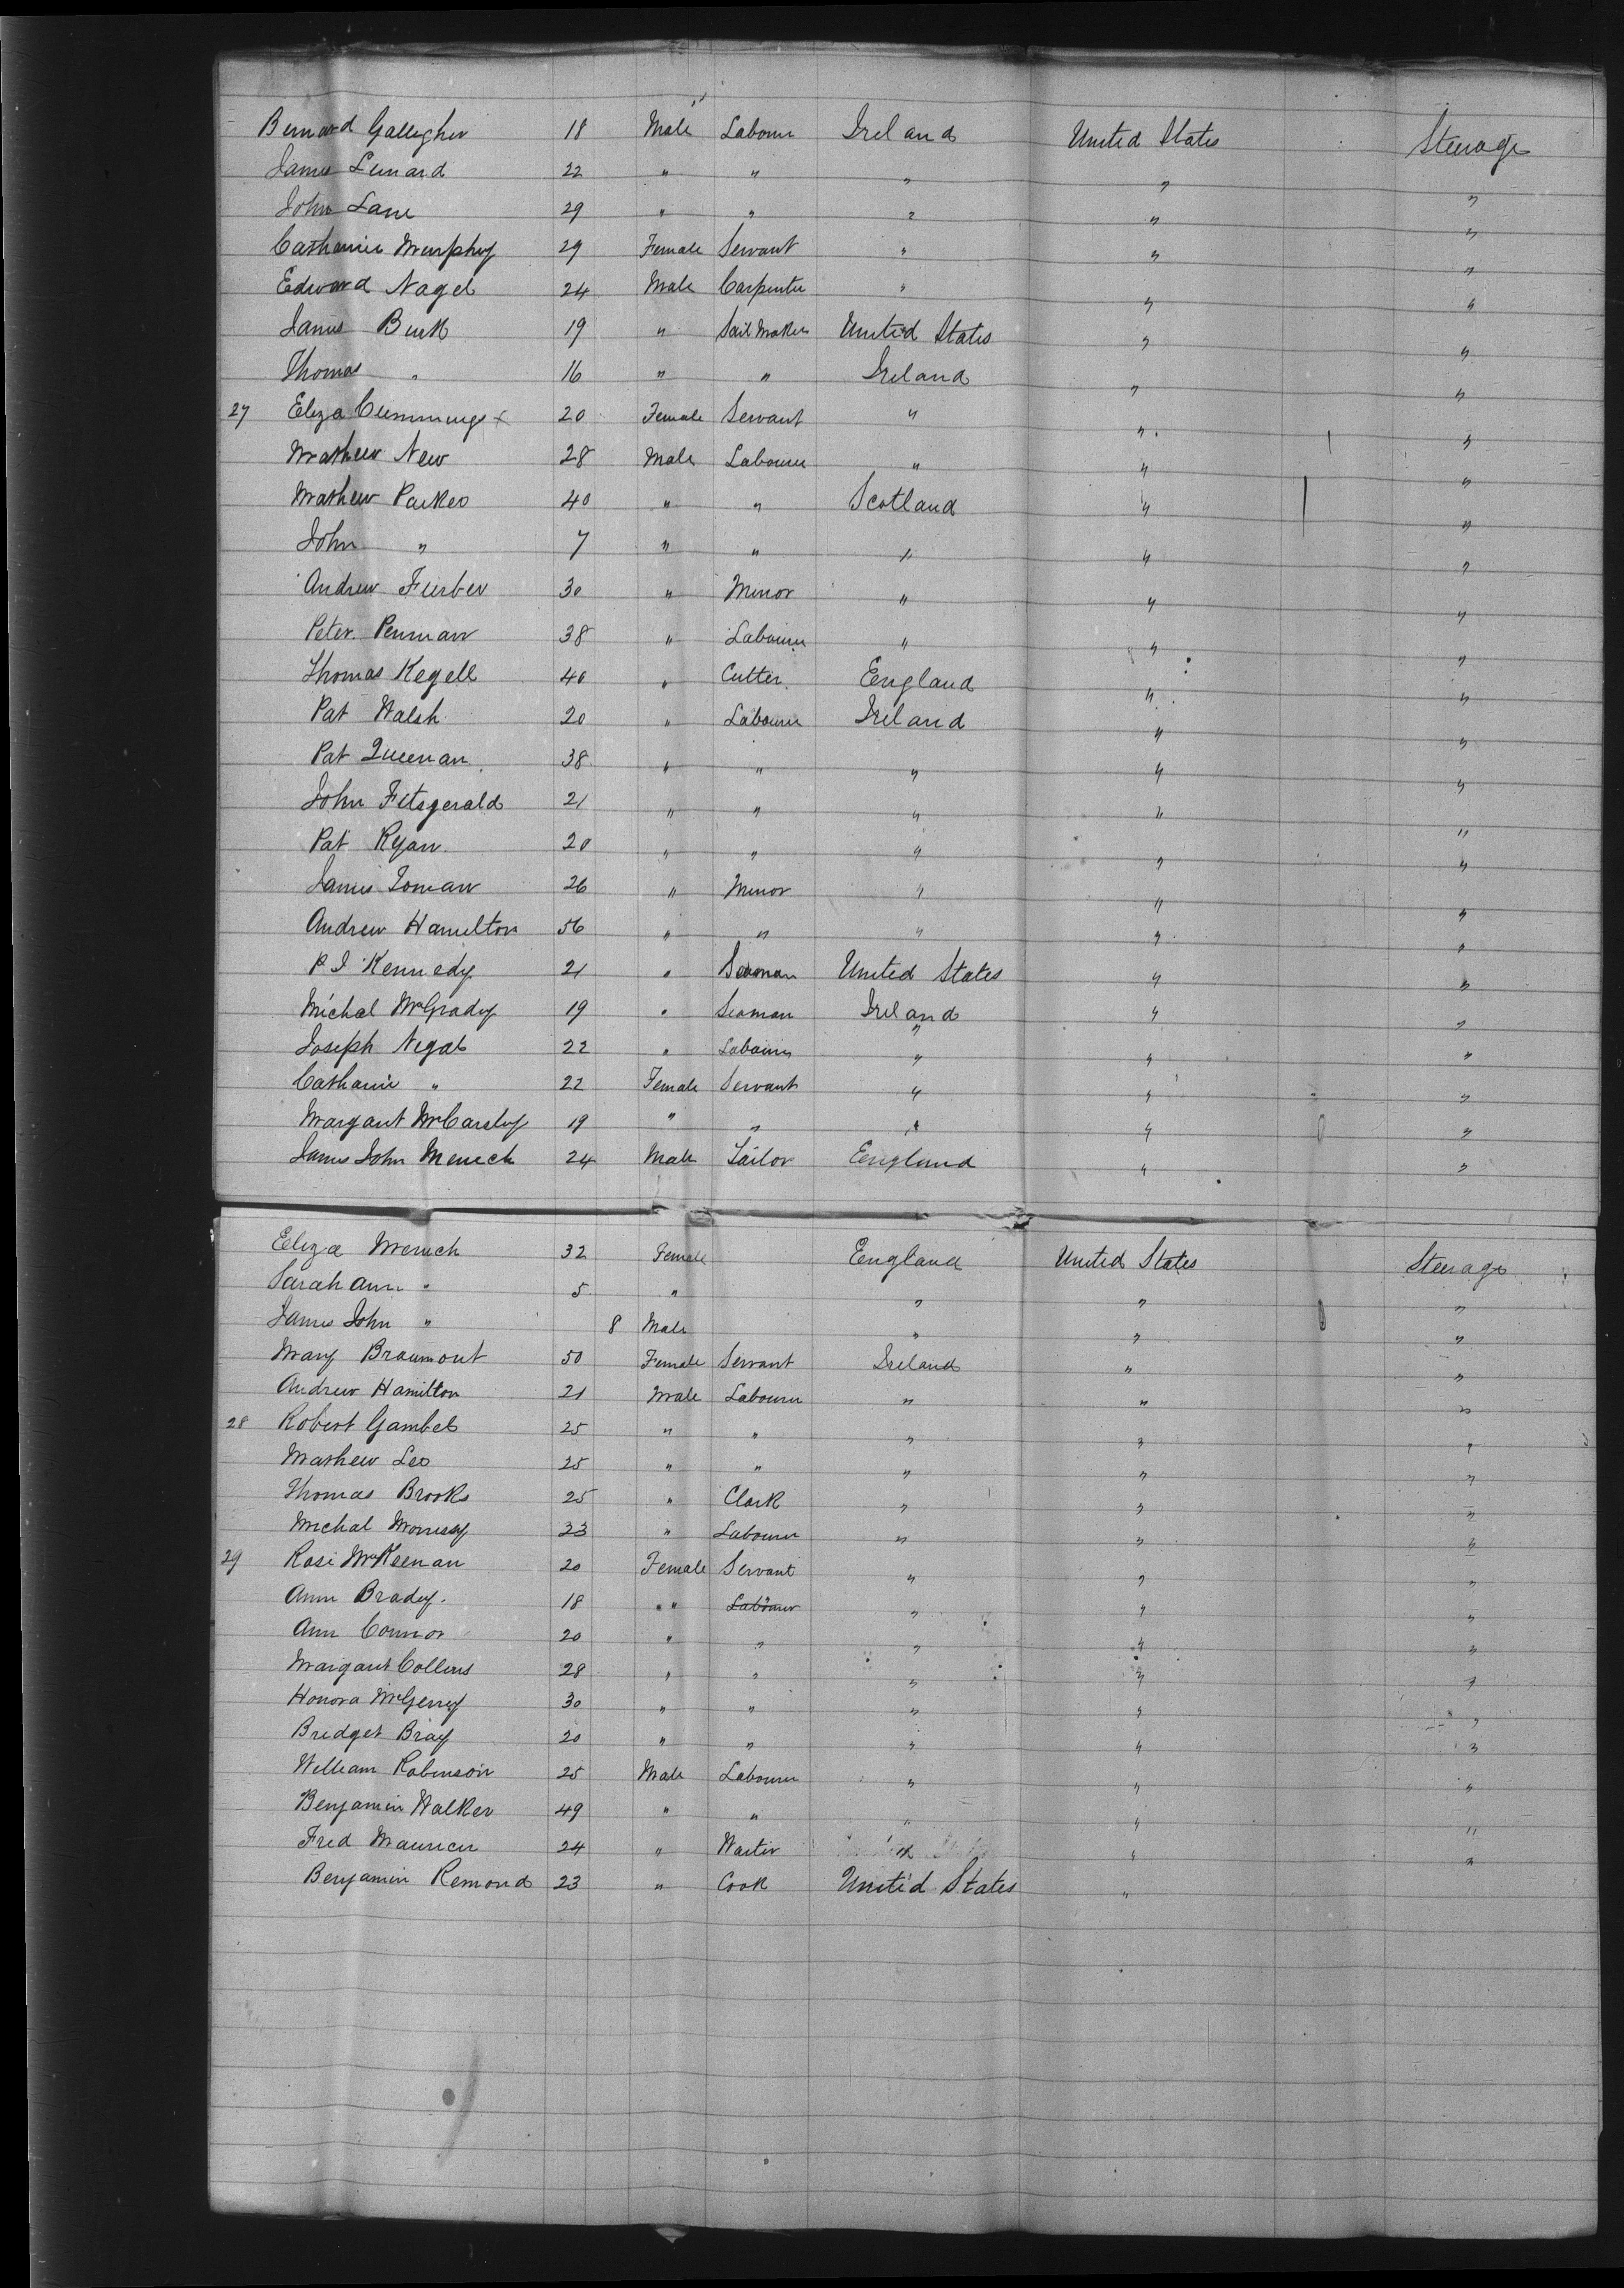 Bernard Gallegher 18 Male Labourer Ireland United States Steerage
James Lenard 22 " " " " "
John Lane 29 " " " " "
Catharine Murphy 29 Female Servant " " "
Edward Nagel 24 Male Carpenter " " "
James Burk 19 " Sail Maker United States " "
Thomas " 16 " " Ireland " "
27 Eliza Cummings x 20 Female Servant " " "
Mathew New 28 Male Labourer " " "
Mathew Parker 40 " " Scotland " "
John " 7 " " " " "
Andrew Furber 30 " Minor " " "
Peter Penman 38 " Labourer " " "
Thomas Kegell 40 " Cutter England " "
Pat Walsh 20 " Labourer Ireland " "
Pat Queenan 38 " " " " "
John Fitsgerald 21 " " " " "
Pat Ryan 20 " " " " "
James Toman 26 " Minor " " "
Andrew Hamilton 56 " " " " "
P J Kennedy 21 " Seaman United States " "
Michal McGrady 19 " Seaman Ireland " "
Joseph Negal 22 " Labourer " " "
Catharine " 22 Female Servant " " "
Margaret McCarsley 19 " " " " "
James John Menech 24 Male Tailor England " "
Eliza Menech 32 Female England United States Steerage
Sarah Ann " 5 " " " "
James John " 8 Male " " "
Mary Braumont 50 Female Servant Ireland " "
Andrew Hamilton 21 Male Labourer " " "
28 Robert Gambel 25 " " " " "
Mathew Leo 25 " " " " "
Thomas Brooks 25 " Clark " " "
Michal Morrissy 23 " Labourer " " "
29 Rose McKeenan 20 Female Servant " " "
Ann Brady 18 " Labourer " " "
Ann Connor 20 " " " " "
Margaret Collins 28 " " " " "
Honora McGerry 30 " " " " "
Bridget Bray 20 " " " " "
William Robinson 25 Male Labourer " " "
Benjamin Walker 49 " " " " "
Fred Maurier 24 " Waiter " " "
Benjamin Remond 23 " Cook United States "